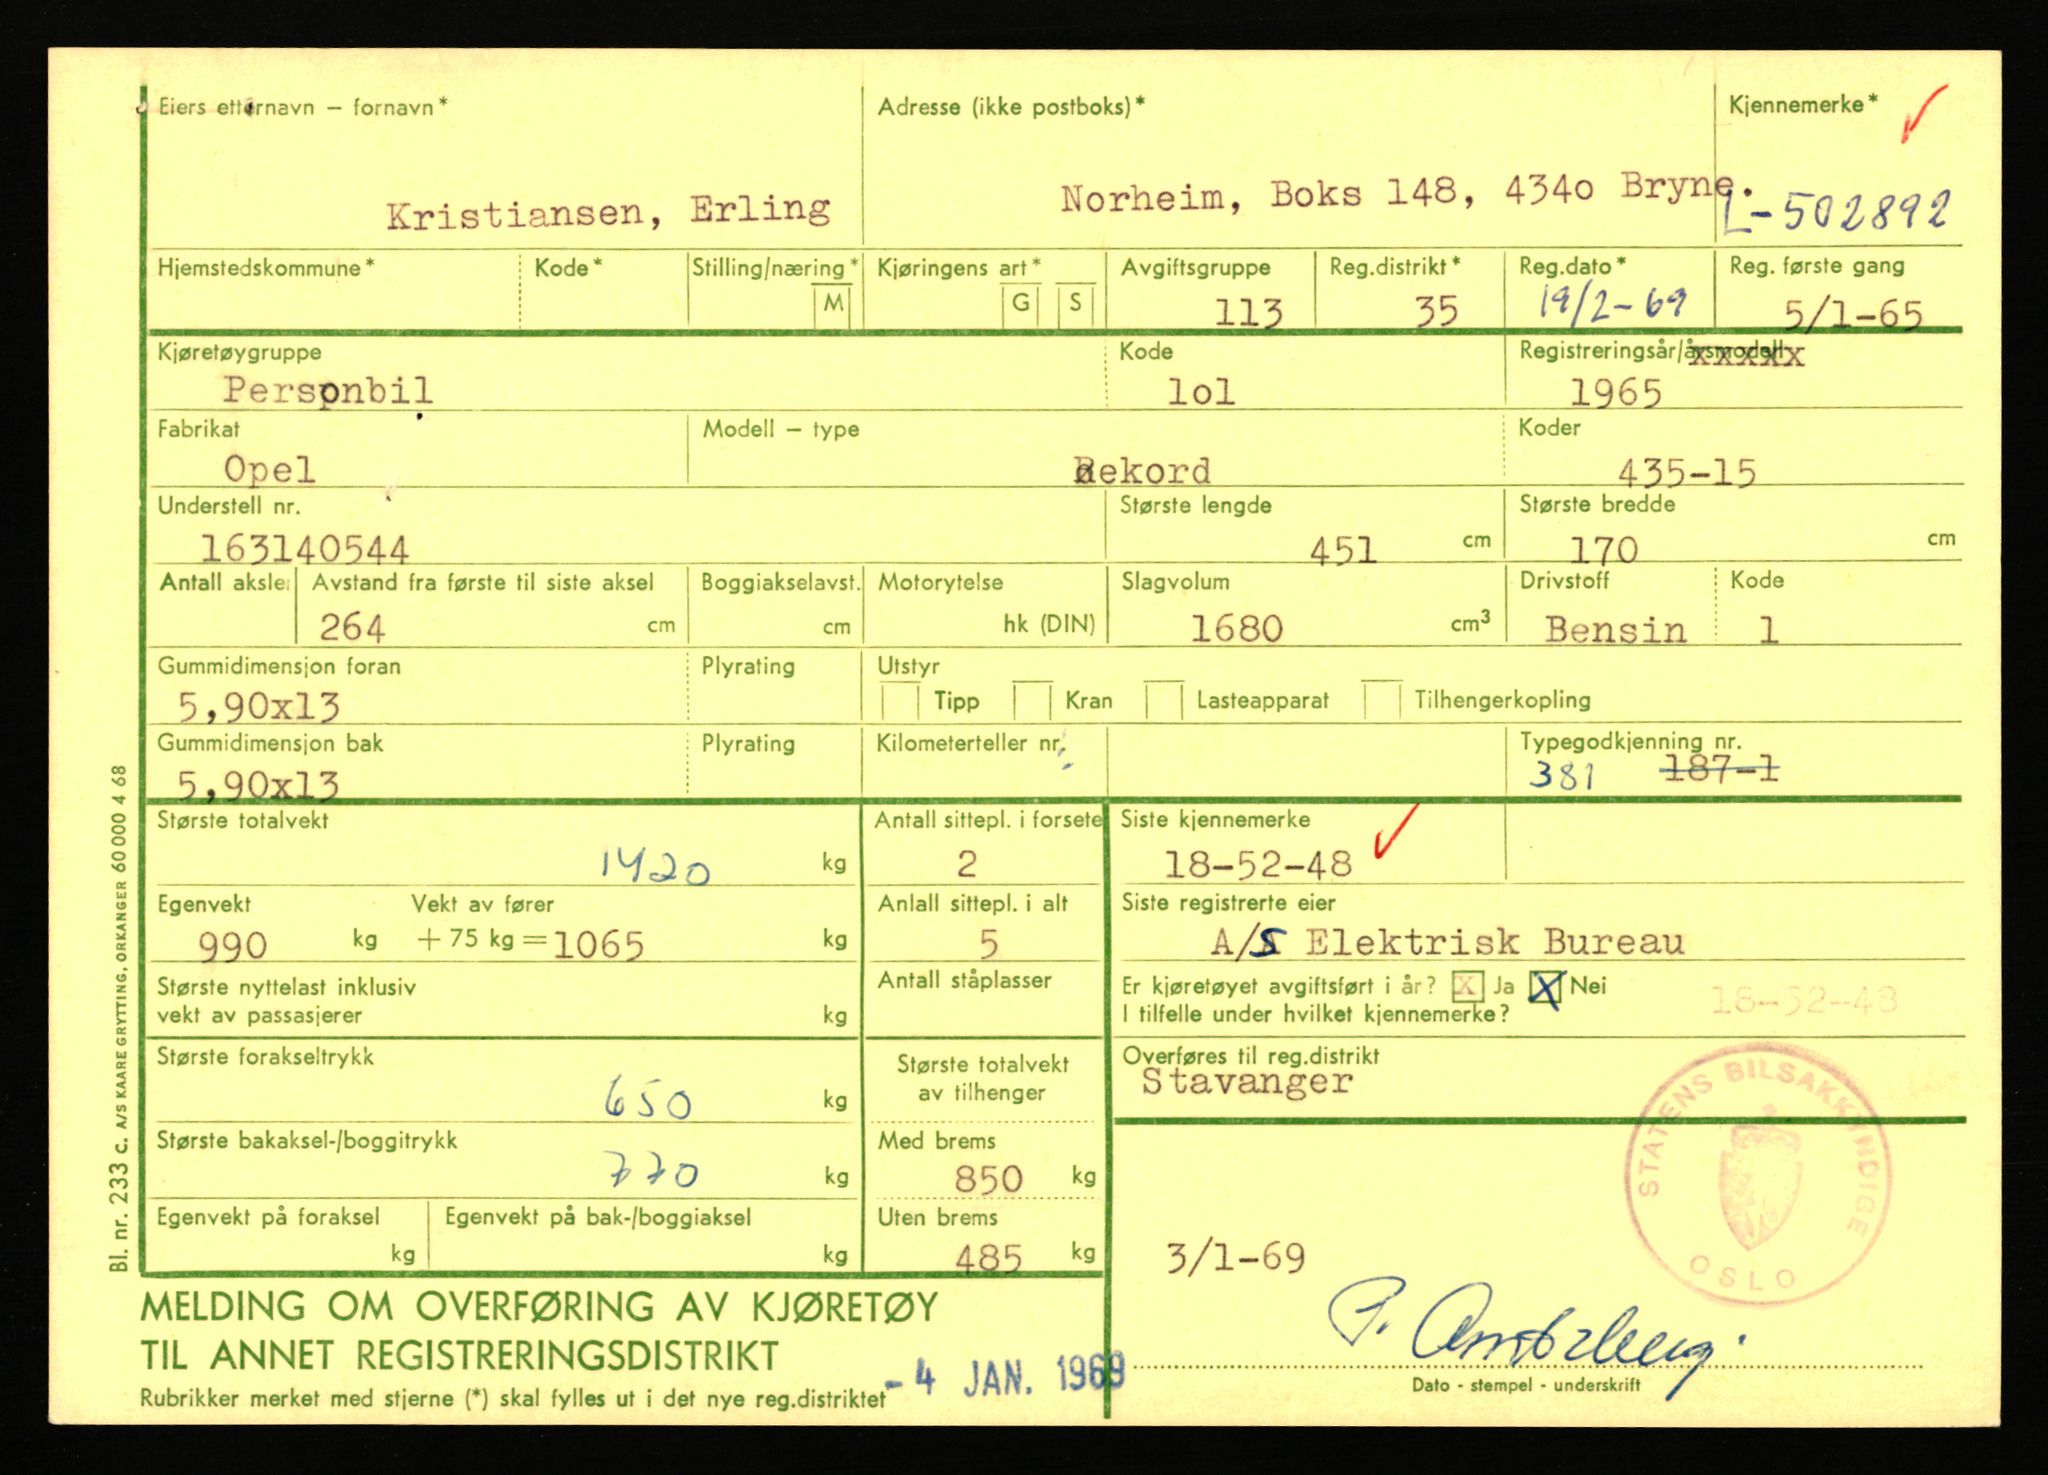 Eiers etternavn – fornavn*
Kristiansen, Erling
Adresse (ikke postboks)*
Norheim, Boks 148, 434o Bryne.
Kjennemerke*
L-502892
Hjemstedskommune*
Kode*
Stilling/næring*
M
Kjøringens art*
G S
Avgiftsgruppe
113
Reg.distrikt*
35
Reg.dato*
19/2-69
Reg. første gang
5/1-65
Kjøretøygruppe
Personbil
Kode
lol
Registreringsår/årsmodell
1965
Fabrikat
Opel
Modell – type
Rekord
Koder
435-15
Understell nr.
163140544
Største lengde
451 cm
Største bredde
170 cm
Antall aksler
Avstand fra første til siste aksel
264 cm
Boggiakselavst.
cm
Motorytelse
hk (DIN)
Slagvolum
1680 cm³
Drivstoff
Bensin
Kode
1
Gummidimensjon foran
5,90x13
Plyrating
Utstyr
Tipp Kran Lasteapparat Tilhengerkopling
Gummidimensjon bak
5,90x13
Plyrating
Kilometerteller nr.
Typegodkjenning nr.
381 187-1
Største totalvekt
1420 kg
Antall sittepl. i forsete
2
Siste kjennemerke
18-52-48
Egenvekt
990 kg
Vekt av fører
+ 75 kg = 1065 kg
Anlall sittepl. i alt
5
Siste registrerte eier
A/S Elektrisk Bureau
Største nyttelast inklusiv
vekt av passasjerer kg
Antall ståplasser
Er kjøretøyet avgiftsført i år? X Ja X Nei
I tilfelle under hvilket kjennemerke?
18-52-48
Største forakseltrykk
650 kg
Største totalvekt
av tilhenger
Overføres til reg.distrikt
Stavanger
Største bakaksel-/boggitrykk
770 kg
Med brems
850 kg
Egenvekt på foraksel
kg
Egenvekt på bak-/boggiaksel
kg
Uten brems
485 kg
STATENS BILSAKKYNDIGE
OSLO
3/1-69
MELDING OM OVERFØRING AV KJØRETØY
TIL ANNET REGISTRERINGSDISTRIKT
Rubrikker merket med stjerne (*) skal fylles ut i det nye reg.distriktet
- 4 JAN. 1969
Dato - stempel - underskrift
Bl. nr. 233 c. A/S KAARE GRYTTING, ORKANGER 60 000 4 68